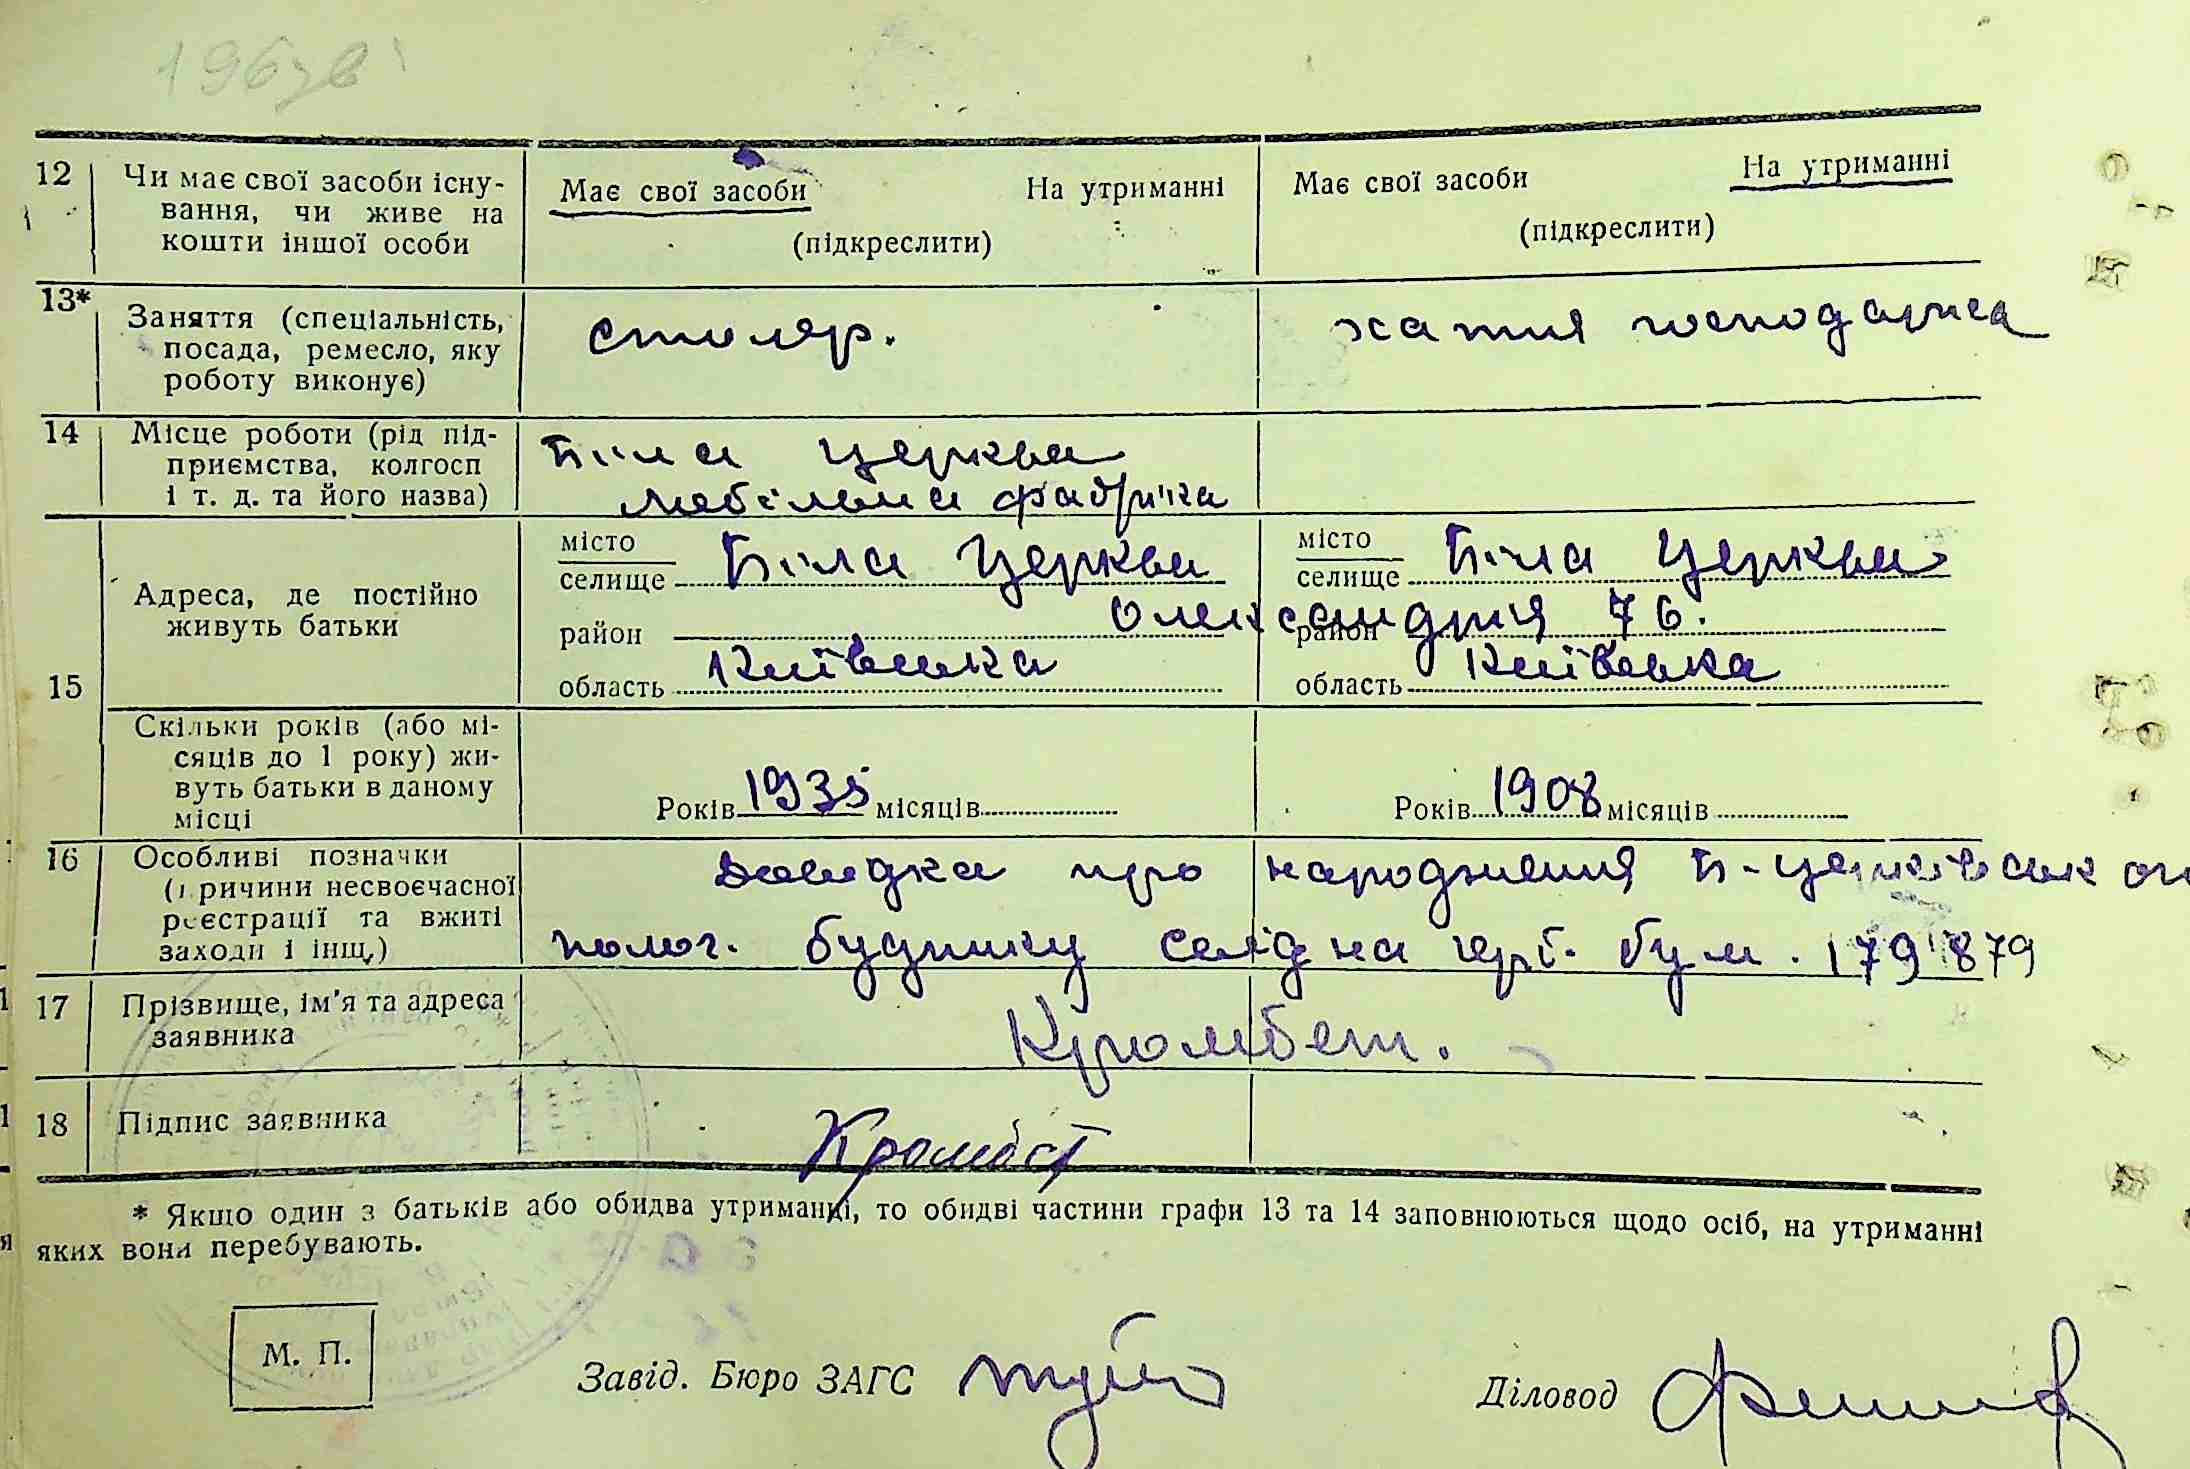 12 Чи має свої засоби існу- Має свої засоби На утриманні Має свої засоби На утриманні
вання, чи живе на
кошти іншої особи (підкреслити) (підкреслити)
13* Заняття (спеціальність, столяр. хатня господарка
посада, ремесло, яку
роботу виконує)
14 Місце роботи (рід під- Біла Церква
приємства, колгосп
і т. д. та його назва) мебільна фабрика
15 Адреса, де постійно
живуть батьки
місто Біла Церква місто Біла Церква
селище селище
район Олександрія 76. район
область Київська область Київська
Скільки років (або мі-
сяців до 1 року) жи-
вуть батьки в даному
місці
Років 1935 місяців Років 1908 місяців
16 Особливі позначки Довидка про народження Б-церківського
(причини несвоєчасної
реєстрації та вжиті полог. будинку
заходи і інщ.) бум. 179879
17 Прізвище, ім'я та адреса
заявника Кромбет.
18 Підпис заявника Кромбет
* Якщо один з батьків або обидва утриманці, то обидві частини графи 13 та 14 заповнюються щодо осіб, на утриманні
яких вони перебувають.
М. П. Завід. Бюро ЗАГС Діловод